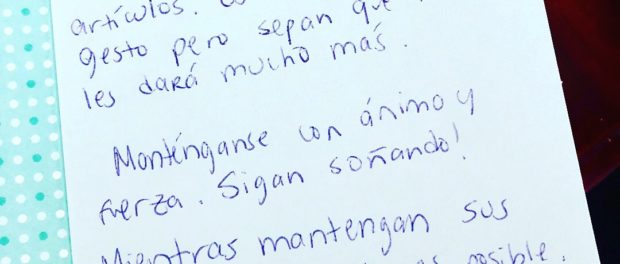 artículos.
gesto pero sepan que
les dará mucho más.
Manténganse con ánimo y
fuerza. Sigan soñando!
Mientras mantengan sus
posible.